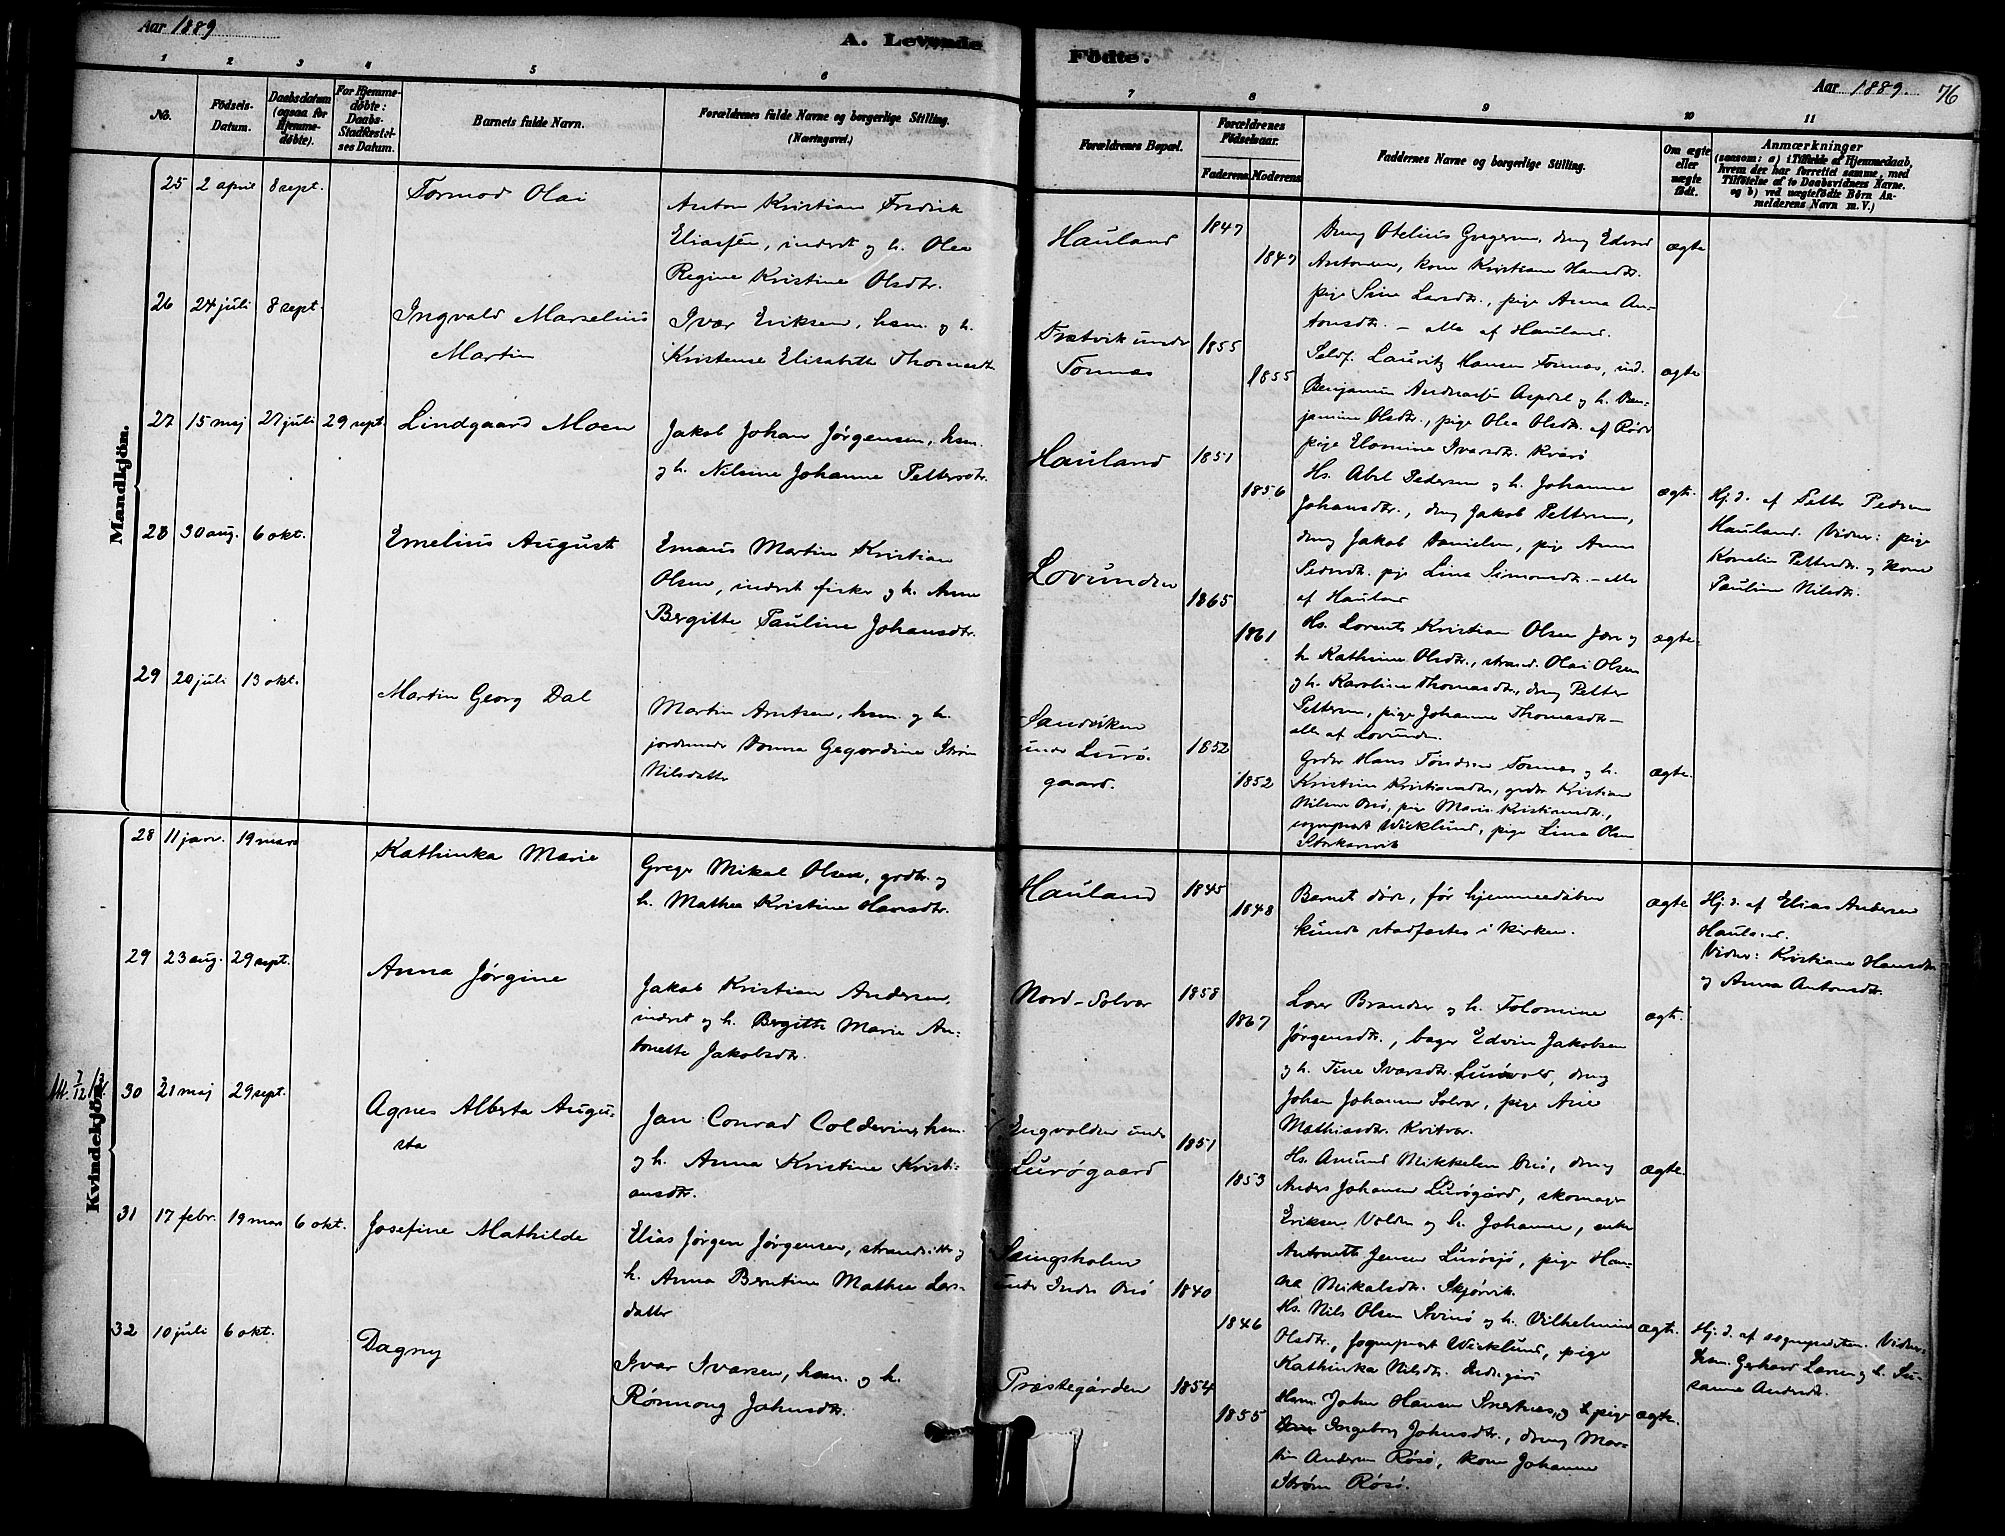 Aar 1889
A. Levende
Fødte.
Aar 1889.
76
1 2 3 4 5 6
7 8 9 10 11
No.
Fødsels-
Datum.
Daabsdatum
(ogsaa for
Hjemme-
døbte).
For Hjemme-
døbte:
Daabs-
Stadfæstel-
ses Datum.
Barnets fulde Navn.
Forældrenes fulde Navne og borgerlige Stilling.
(Næringsvei.)
Forældrenes Bopæl.
Forældrenes
Fødselsaar.
Faderens. Moderens.
Faddernes Navne og borgerlige Stilling.
Om ægte
eller
uægte
født.
Anmærkninger
(saasom: a) i Tilfælde af Hjemmedaab,
hvem der har forrettet samme, med
Tilføielse af to Daabsvidners Navne.
og b) ved uægtefødte Børn An-
melderens Navn m. V.)
Mandkjön.
25 2 april 8 sept.
Tormod Olai
Anton Kristian Fredrik
Eliassen, inderst og h. Olea
Regine Kristine Olsdtr.
Hauland
1847
1847
Dreng Otelius Gregersen, dreng Edvard
Antonsen, kone Kristiane Hansdtr.
pige Sine Larsdtr., pige Anna An-
tonsdtr. - alle af Hauland.
ægte
26 24 juli 8 sept.
Ingvald Marselius
Martin
Ivar Eriksen, hsm. og h.
Kristense Elisabeth Thomasdtr
under
Tonnes
1855
1855
Selvf. Lauritz Hansen Tonnes, ind.
Benjamin Andreassen Aspdal og h. Ben-
jamine Olsdtr., pige Olea Olsdtr. af
pige Elomine Ivarsdtr. Kvarø
ægte
27 15 maj 27 juli 29 sept.
Lindgaard Moen
Jakob Johan Jørgensen, hsm.
og h. Nilsine Johanne Pettersdtr.
Hauland
1851
1856
Hs. Abel Pedersen og h. Johanne
Johansdtr., dreng Jakob Pettersen,
dreng Jakob Danielsen, pige Anne
Pedersdtr. pige Lina Simonsdtr. - alle
af Hauland
ægte
Hj. d. af Petter Pedersen
Hauland. Vidner: pige
Kornelia Pettersdtr. og kone
Pauline Nilsdtr.
28 30 aug. 6 okt.
Emelius August
Emaus Martin Kristian
Olsen, inderst fisker og h. Anne
Bergitte Pauline Johansdtr.
Lovunden
1865
1861
Hs. Lorents Kristian Olsen og
h. Kathrine Olsdtr., strands. Olai Olsen
og h. Karoline Thomasdtr., dreng Petter
Pettersen, pige Johanne Thomasdtr -
alle af Lovunden.
ægte.
29 20 juli 13 okt.
Martin Georg Dal
Martin Arntsen, hsm. og h.
jordemoder Gegardine Strøm
Nilsdatter
Sandviken
under Lurø-
gaard.
1852
1852
Grdbr Hans Tonnes og h.
Kristine Kristiansdtr, grdbr Kristian
Nilsen pige Maria Kristiansdtr.,
sogneprest Wicklund, pige Lina Olsen
ægte.
Kvindekjön.
28 11 janr. 19 mars
Kathinka Marie
Greger Mikal Olsen, grdbr. og
h. Mathea Kristine Hansdtr.
Hauland
1845
1848
Barnet døde, før hjemmedåben
kunde stadfæstes i kirken.
ægte
Hj. d. af Elias Andersen
Hauland.
Vidner: Kristiane Hansdtr
og Anna Antonsdtr.
29 23 aug. 29 sept.
Anna Jørgine
Jakob Kristian Andersen,
inderst og h. Bergitte Marie An-
tonette Jakobsdtr.
Nord-Solvær
1858
1867
Lærer Brandser og h. Tolomine
Jørgensdtr., bager Edvin Jakobsen
og h. Tine Ivarsdtr. Lurøvold, dreng
Johan Johansen Solvær, pige Ane
Mathiasdtr. Kvitvær.
ægte.
30 21 maj 29 sept.
Agnes Alberta Augu-
sta
Jan Conrad Coldevin, hsm.
og h. Anna Kristine Kristi-
ansdtr.
Engvolden under
Lurøgaard
1851
1853
Hs. Amund Mikkelsen dreng
Anders Johansen Lurøgård, skomager
Eriksen Volden og h. Johanne, enke
Antonette Jensen Lurøsjø, pige Han-
na Mikalsdtr. Skjørvik.
ægte
31 17 febr. 19 mars 6 okt.
Josefine Mathilde
Elias Jørgen Jørgensen, strandsitter og
h. Anna Berntine Mathea Lars-
datter
under Indre
1840
1846
Hs. Nils Olsen Svinø og h. Vilhelmine
Olsdtr., sogneprest Wicklund, pige
Kathinka Nilsdtr.
ægte.
Hj. d. af sognepresten. Vidner:
hsm. Gerhard Larsen og h. Su-
sanne Andersdtr.
32 10 juli 6 okt.
Dagny
Ivar Ivarsen, hsm. og h.
Rønnong Johnsdtr.
Præstegården
1854
1855
Hsm. John Hansen og pige
Ingeborg Johnsdtr., dreng Mar-
tin Andersen Røsø, kone Johanne
Strøm Røsø.
ægte.